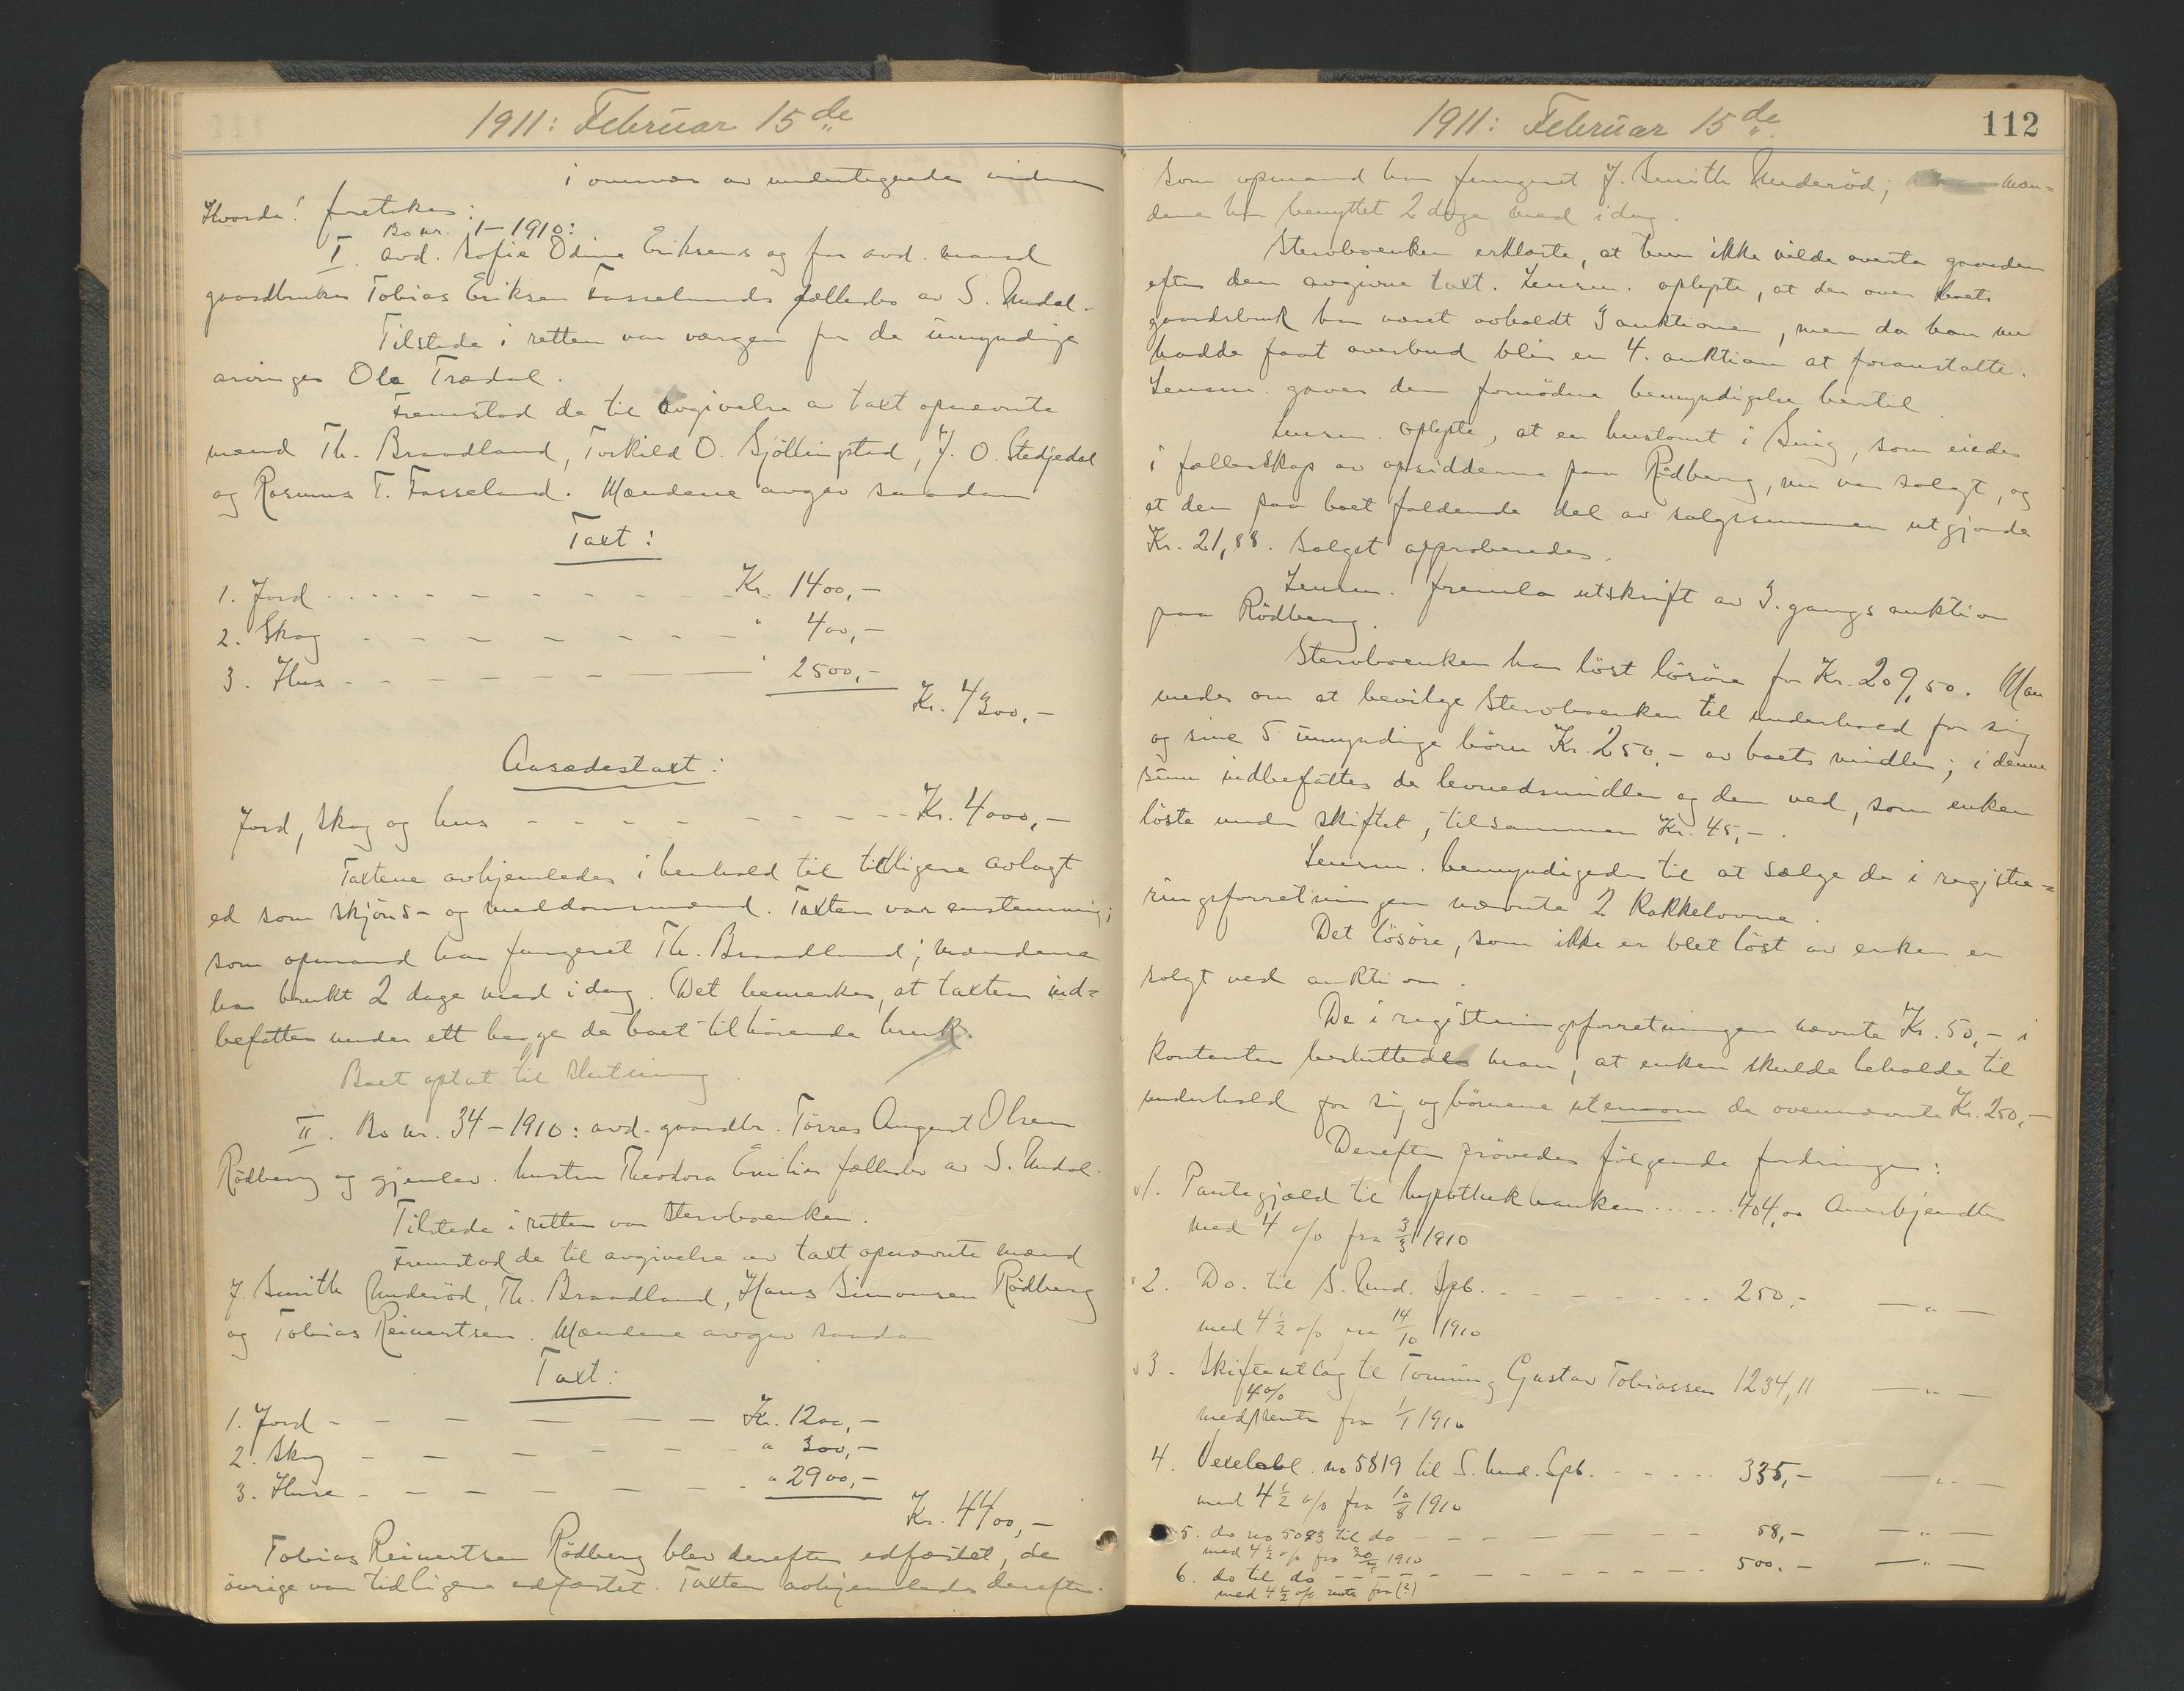 1911: Februar 15de
i overvær av undertegnede vidner
Hvorda! foretokes:
Bo nr. 1-1910:
I. avd. Sofie Odine Eriksens og før avd. mand
gaardbruker Tobias Eriksen Fasselands fællesbo av S. Undal.
Tilstede i retten var værgen for de umyndige
arvinger Ola Trædal.
Fremstod de til avgivelse av taxt opnævnte
mænd Th. Braadland, Torkild O. Gjöllingstad, J. O. Stedjedal
og Rasmus T. Fasseland. Mændene avgav saadan
Taxt:
1. Jord .... - - - - - - Kr. 1400,-
2. Skog - - - - - - - " 400,-
3. Hus - - - - - - " 2500,-
Kr. 4300,-
Aasædestaxt:
Jord, skog og hus - - - - - - - Kr. 4000,-
Taxtene avhjemledes i henhold til tidligere avlagt
ed som skjöns- og meddomsmænd. Taxten var enstemmig;
som opmand har fungeret Th. Braadland; mændene
har brukt 2 dage med idag. Det bemerkes, at taxten ind=
befatter under ett begge de boet tilhörende bruk.
Boet optat til slutning.
II. Bo nr. 34-1910: avd. gaardbr. Törres August Olsen
Rödberg og gjenlev. hustru Theodora Emilies fællesbo av S. Undal.
Tilstede i retten var stervboenken.
Fremstod de til avgivelse av taxt opnævnte mænd
J. Smith Underöd, Th. Braadland, Hans Simonsen Rödberg
og Tobias Reinertsen. Mændene avgav saadan
Taxt:
1. Jord - - - - - - Kr. 1200,-
2. Skog - - - - - - " 300,-
3. Huse - - - - - - " 2900,-
Kr. 4400,-
Tobias Reinertsen Rödberg blev derefter edfæstet, de
övrige var tidligere edfæstet. Taxten avhjemledes derefter.
1911: Februar 15de
112
Som opmand har fungeret J. Smith Underöd; mæn=
dene har benyttet 2 dage med idag.
Stervboenken erklærte, at hun ikke vilde overta gaarden
efter den avgivne taxt. Lensm. oplyste, at der over boets
gaardsbruk har været avholdt 3 auktioner, men da han nu
hadde faat overbud blir en 4. auktion at foranstalte.
Lensm. gaves den fornödne bemyndigelse hertil.
Lensm. oplyste, at en hustomt i Snig, som eiedes
i fællesskap av opsidderne paa Rödberg, nu var solgt, og
at den paa boet faldende del av salgssummen utgjorde
Kr. 21,88. Salget approberedes.
Lensm. fremla utskrift av 3. gangs auktion
paa Rödberg.
Stervboenken har löst lösöre for Kr. 209,50. Man
enedes om at bevilge stervboenken til underhold for sig
og sine 5 umyndige börn Kr. 250,- av boets midler; i denne
sum indbefattes de levnedsmidler og den ved, som enken
löste under skiftet, tilsammen Kr. 45,-.
Lensm. bemyndigedes til at sælge de i registre=
ringsforretningen nævnte 2 kakkelovne.
Det lösöre, som ikke er blet löst av enken er
solgt ved auktion.
De i registreringsforretningen nævnte Kr. 50,- i
kontanter besluttedes man, at enken skulde beholde til
underhold for sig og börnene utenom de ovennævnte Kr. 250,-
Derefter prövedes fölgende fordringer:
1. Pantegjæld til hypothekbanken ..... 404,00 Anerkjendtes
med 4 o/o fra 3/3 1910
2. Do. til S. Und. Spb. - - - - - - 250,- —"—
med 4 1/2 o/o fra 14/10 1910
3. Skifteutlæg til Tomine Gustav Tobiassen 1234,11 —"—
4 o/o
med rente fra 1/1 1910
4. Vexelobl. no 5819 til S. Und. Spb. - - - - 335,- —"—
med 4 1/2 o/o fra 10/8 1910
5. do no 5083 til do - - - - - - - 58,- —"—
med 4 1/2 o/o fra 20/7 1910
6. do til do - - - - - - - - - 500.- —"—
med 4 1/2 o/o rente fra (?)